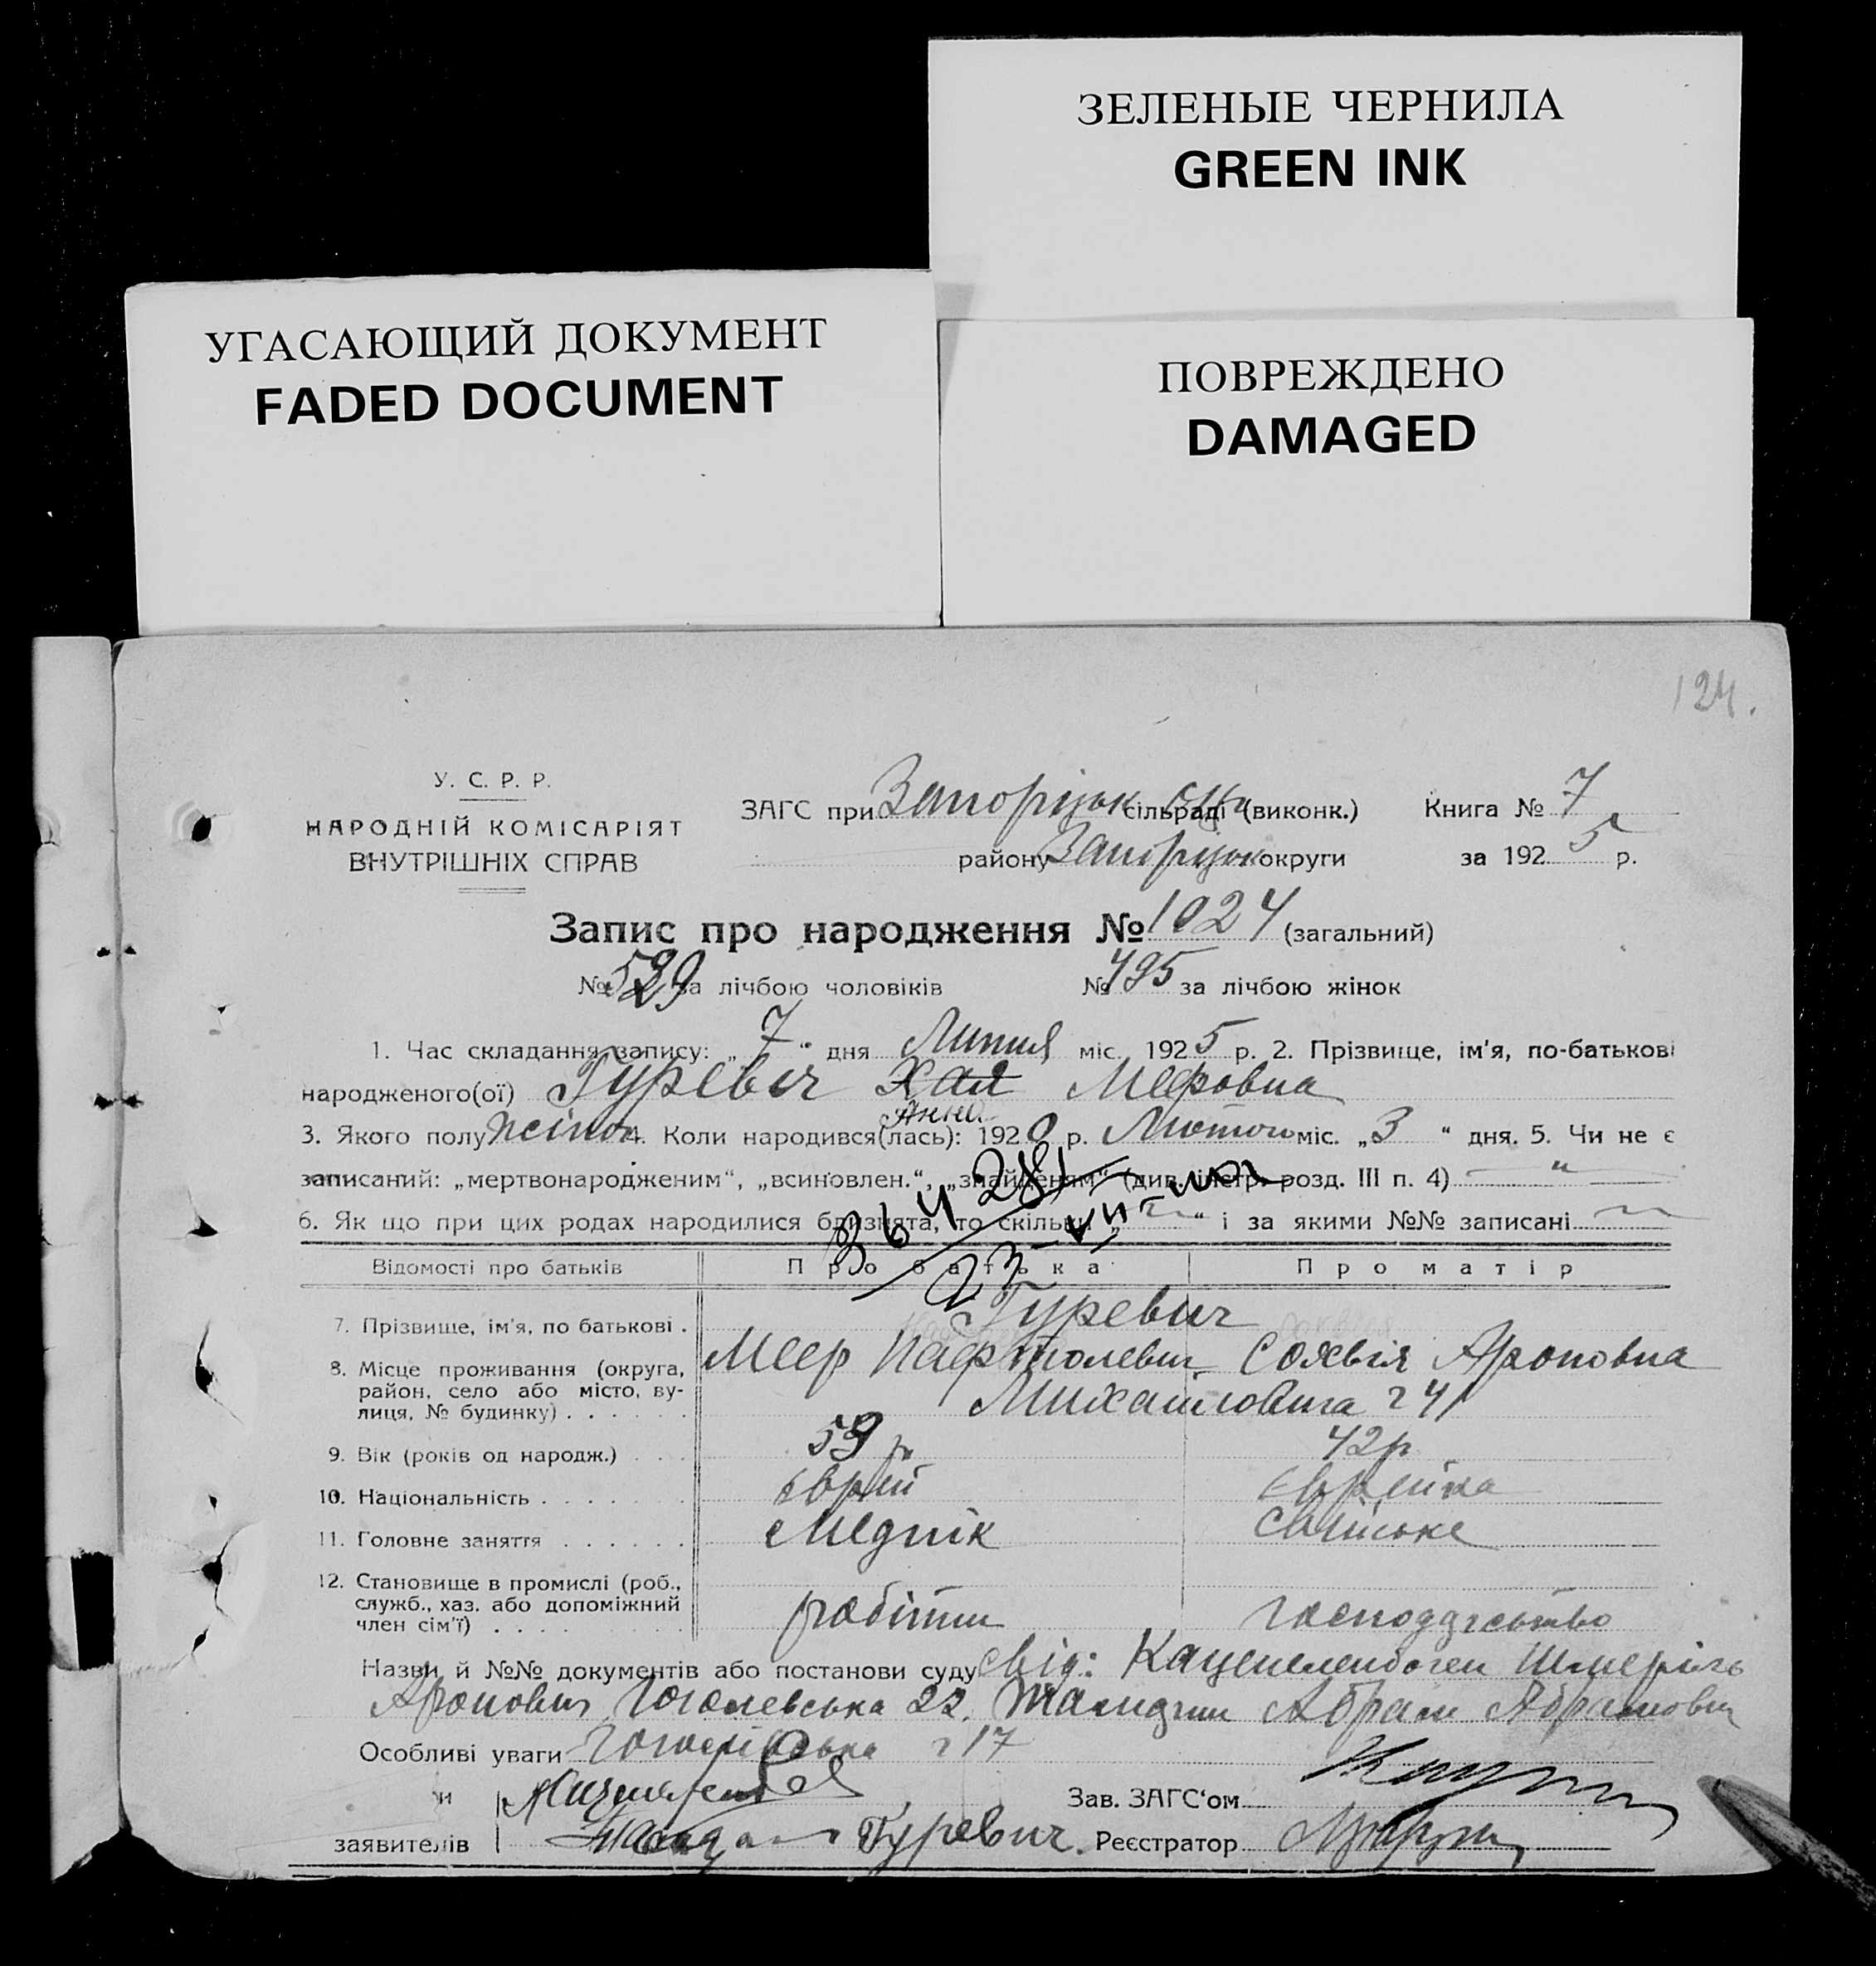 ЗЕЛЕНЫЕ ЧЕРНИЛА
GREEN INK
УГАСАЮЩИЙ ДОКУМЕНТ
FADED DOCUMENT
ПОВРЕЖДЕНО
DAMAGED
124.
У. С. Р. Р.
НАРОДНІЙ КОМІСАРІЯТ
ВНУТРІШНІХ СПРАВ
ЗАГС при Запорізьк сільраді (виконк.) Книга № 7
району Запорізьк округи за 1925 р.
Запис про народження № 1024 (загальний)
№ 529 за лічбою чоловіків № 495 за лічбою жінок
1. Час складання запису: „7“ дня Липня міс. 1925 р. 2. Прізвище, ім'я, по-батькові
народженого(ої) Гуревич Хая Меєровна
Анна
3. Якого полу жіноч 4. Коли народився(лась): 1920 р. Лютого міс. „3“ дня. 5. Чи не є
записаний: „мертвонародженим“, „всиновлен.“, „знайденим“ (див. інстр. розд. III п. 4) — " —
6. Як що при цих родах народилися близнята, то скільки „ “ і за якими №№ записані
Відомості про батьків Про батька Про матір
7. Прізвище, ім'я, по батькові . Гуревич
Меер Нафтолевич Софвія Ароновна
8. Місце проживання (округа, район, село або місто, вулиця, № будинку) . . . . . . Михайловича 41
9. Вік (років од народж.) . . . 59 р 42 р
10. Національність . . . . . . . єврей єврейка
11. Головне заняття . . . . . . Меднік Свійське
12. Становище в промислі (роб., служб., хаз. або допоміжний член сім'ї) . . . . робітни господарство
Назви й №№ документів або постанови суду Свід: Каценеленбоген
Аронович Гоголевська 22. Абрам Абрамович
Особливі уваги Гоголівська 17
Зав. ЗАГС'ом
заявителів Гуревич. Реєстратор